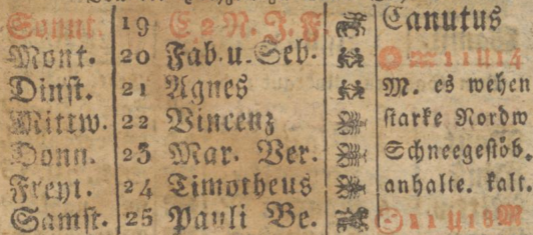 Sonnt. 19 E 2 N. J. F. Canutus
Mont. 20 Fab. u. Seb.
Dinst. 21 Agnes M. es wehen
Mittw. 22 Vincenz starke Nordw
Donn. 23 Mar. Ver. Schneegestöb.
Freyt. 24 Timotheus anhalte. kalt.
Samst. 25 Pauli Be.